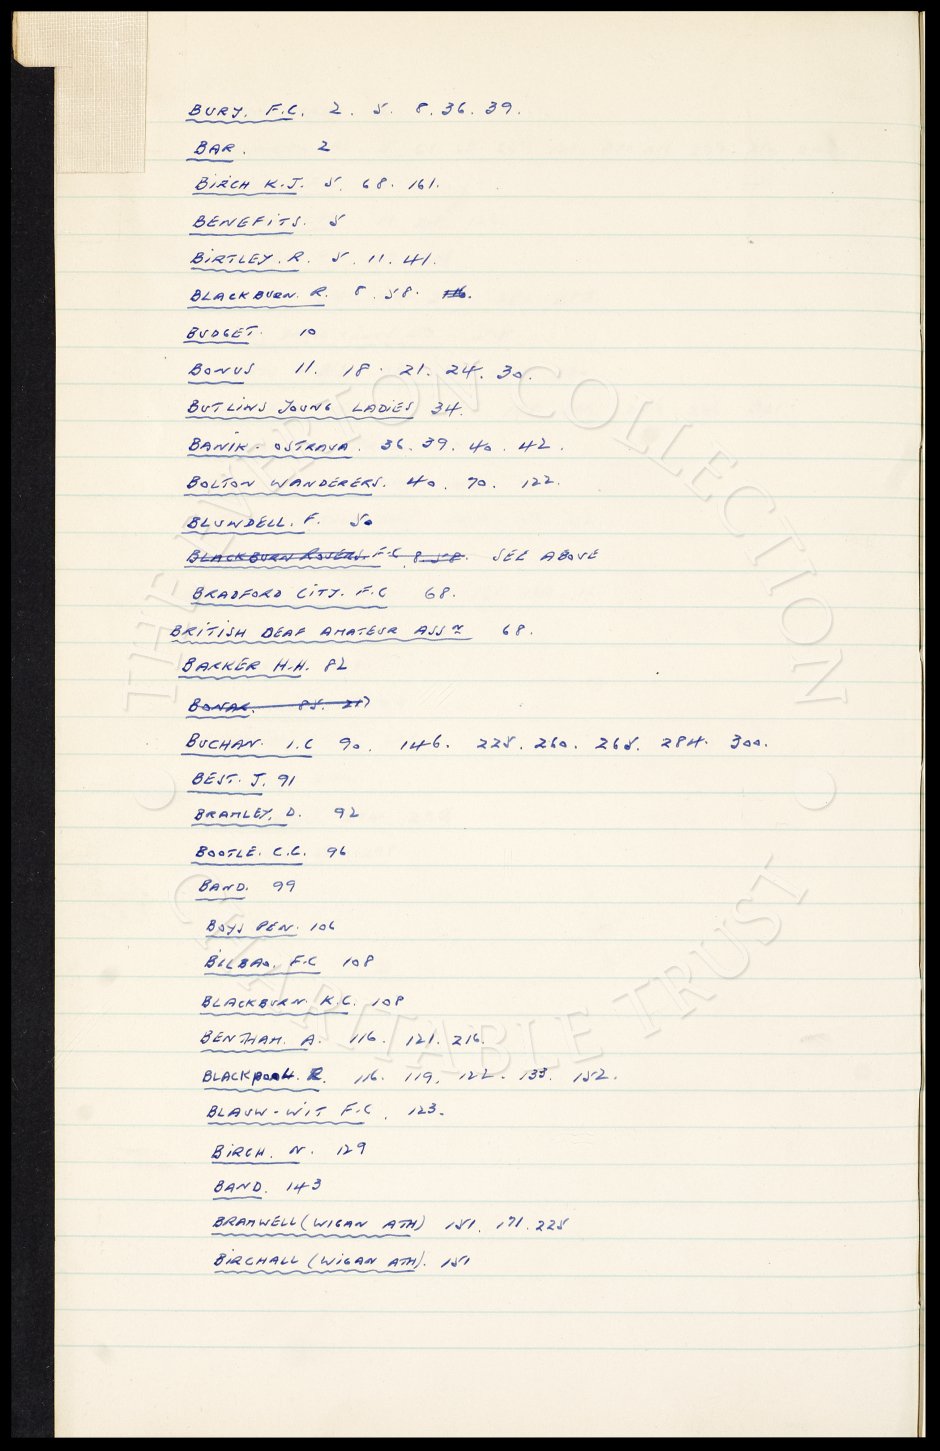 BURY. F.C. 2. 5. 8. 36. 39.
BAR. 2
BIRCH K.J. 5. 68. 161.
BENEFITS. 5
BIRTLEY. R. 5. 11. 41.
BLACKBURN. R. 8. 58.
BUDGET. 10
BONUS 11. 18. 21. 24. 30.
BUTLINS YOUNG LADIES 34.
BANIK. OSTRAVA. 36. 39. 40. 42.
BOLTON WANDERERS. 40. 70. 122.
BLUNDELL. F. 50
BLACKBURN ROVERS. F.C. 8 58. SEE ABOVE
BRADFORD CITY. F.C 68.
BRITISH DEAF AMATEUR ASSN 68.
BARKER H.H. 82
BONAR. 85. 217
BUCHAN. I.C 90. 146. 225. 260. 265. 284. 300.
BEST. J. 91
BRAMLEY. D. 92
BOOTLE. C.C. 96
BAND. 99
BOYS PEN. 106
BILBAO. F.C 108
BLACKBURN. K.C. 108
BENTHAM. A. 116. 121. 216.
BLACKPOOL. R. 116. 119. 122. 133. 152.
BLAUW-WIT F.C. 123.
BIRCH. N. 129
BAND. 143
BRAMWELL (WIGAN ATH) 151. 171. 225
BIRCHALL (WIGAN ATH). 151
THE EVERTON COLLECTION
CHARITABLE TRUST